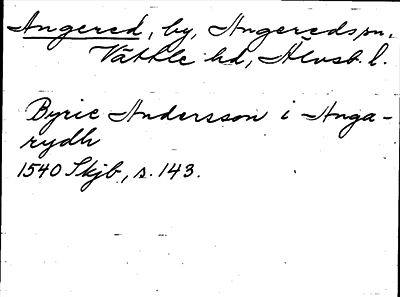 Angered, by, Angereds sn,
Vättle hd, Älvsb. l.
Byrie Andersson i Anga-
rydh
1540 Skjb, s. 143.